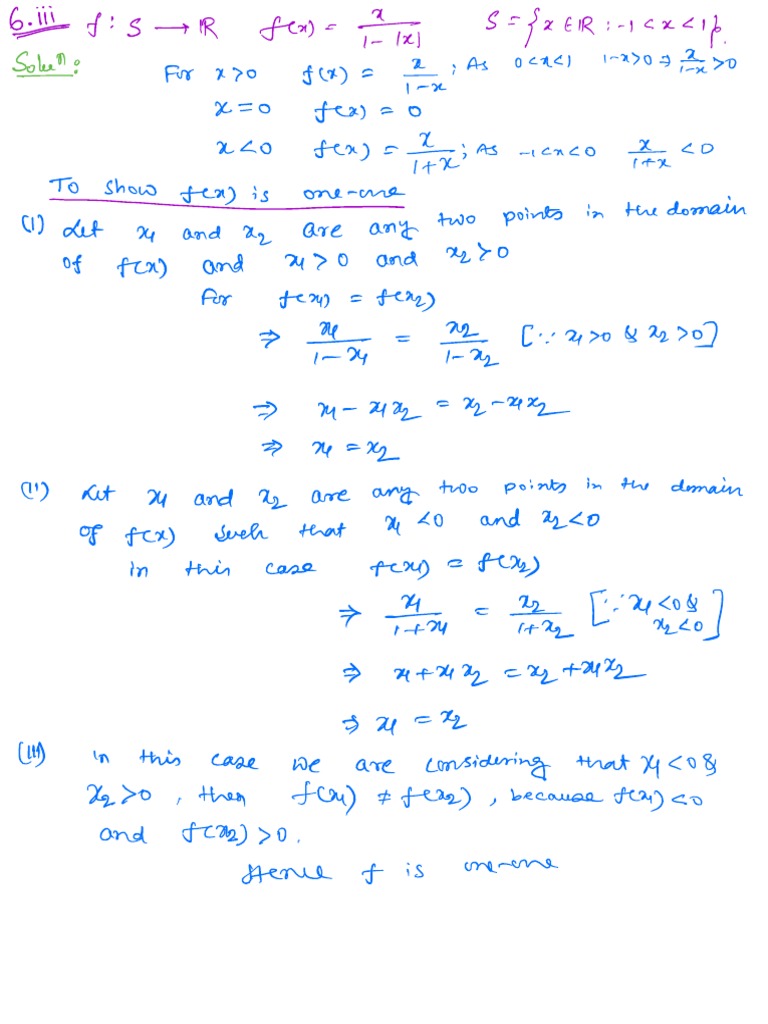 6.iii f : S → ℝ f(x) = x / (1 - |x|) S = {x ∈ ℝ : -1 < x < 1}.
Soluⁿ:
For x > 0 f(x) = x / (1 - x) ; As 0 < x < 1 1 - x > 0 ⇒ x / (1 - x) > 0
x = 0 f(x) = 0
x < 0 f(x) = x / (1 + x) ; As -1 < x < 0 x / (1 + x) < 0
To show f(x) is one-one
(I) Let x₁ and x₂ are any two points in the domain
of f(x) and x₁ > 0 and x₂ > 0
For f(x₁) = f(x₂)
⇒ x₁ / (1 - x₁) = x₂ / (1 - x₂) [∵ x₁ > 0 & x₂ > 0]
⇒ x₁ - x₁x₂ = x₂ - x₁x₂
⇒ x₁ = x₂
(II) Let x₁ and x₂ are any two points in the domain
of f(x) such that x₁ < 0 and x₂ < 0
in this case f(x₁) = f(x₂)
⇒ x₁ / (1 + x₁) = x₂ / (1 + x₂) [∵ x₁ < 0 & x₂ < 0]
⇒ x₁ + x₁x₂ = x₂ + x₁x₂
⇒ x₁ = x₂
(III) in this case we are considering that x₁ < 0 &
x₂ > 0 , then f(x₁) ≠ f(x₂) , because f(x₁) < 0
and f(x₂) > 0.
Hence f is one-one